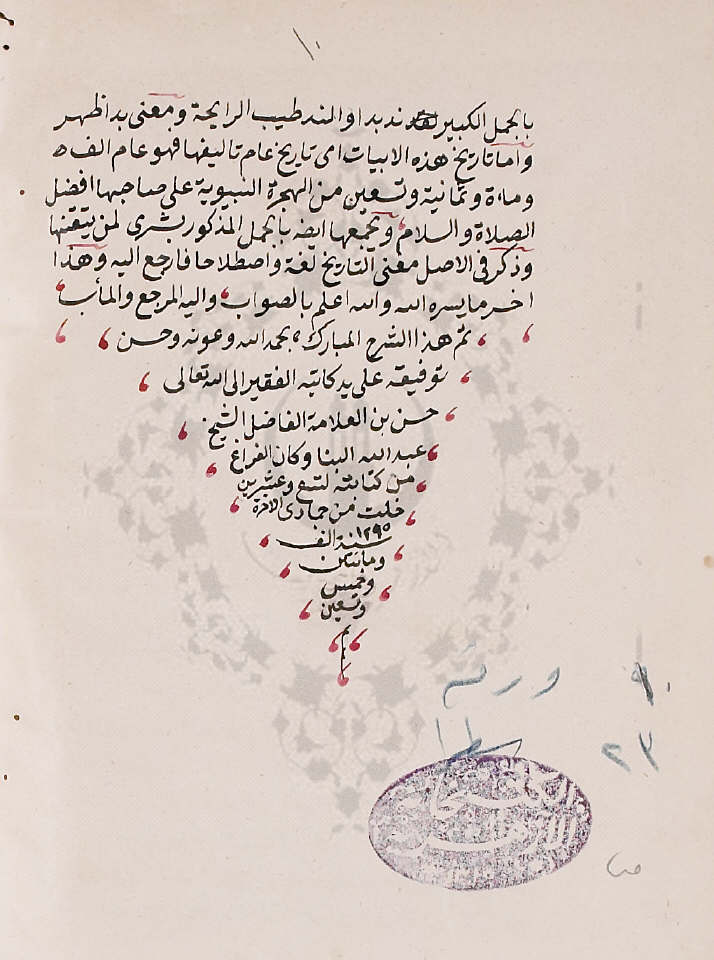 ١٠
بالجمل الكبير ند بدا والند طيب الرايحة ومعنى بدا ظهر
واما تاريخ هذه الابيات اى تاريخ عام تاليفها فهو عام الف
وماءة وثمانية وتسعين من الهجرة النبوية على صاحبها افضل
الصلاة والسلام ويجمعها ايضه بالجمل المذكور بشرى لمن يتقنها
وذكر فى الاصل معنى التاريخ لغة واصطلاحا فارجع اليه وهذا
اخر ما يسره الله والله اعلم بالصواب واليه المرجع والمأب
تم هذا الشرح المبارك بحمد الله وعونه وحسن
توفيقه على يد كاتبه الفقير الى الله تعالى
حسن بن العلامة الفاضل الشيخ
عبد الله البنا وكان الفراغ
من كتابته لتسع وعشرين
خلت من جمادى الاخرة
سنة الف ١٢٩٥
وماتين
وخمس
وتسعين
٩ ورقه
٢٣ سطرا
الكتبخانة
الازهرية